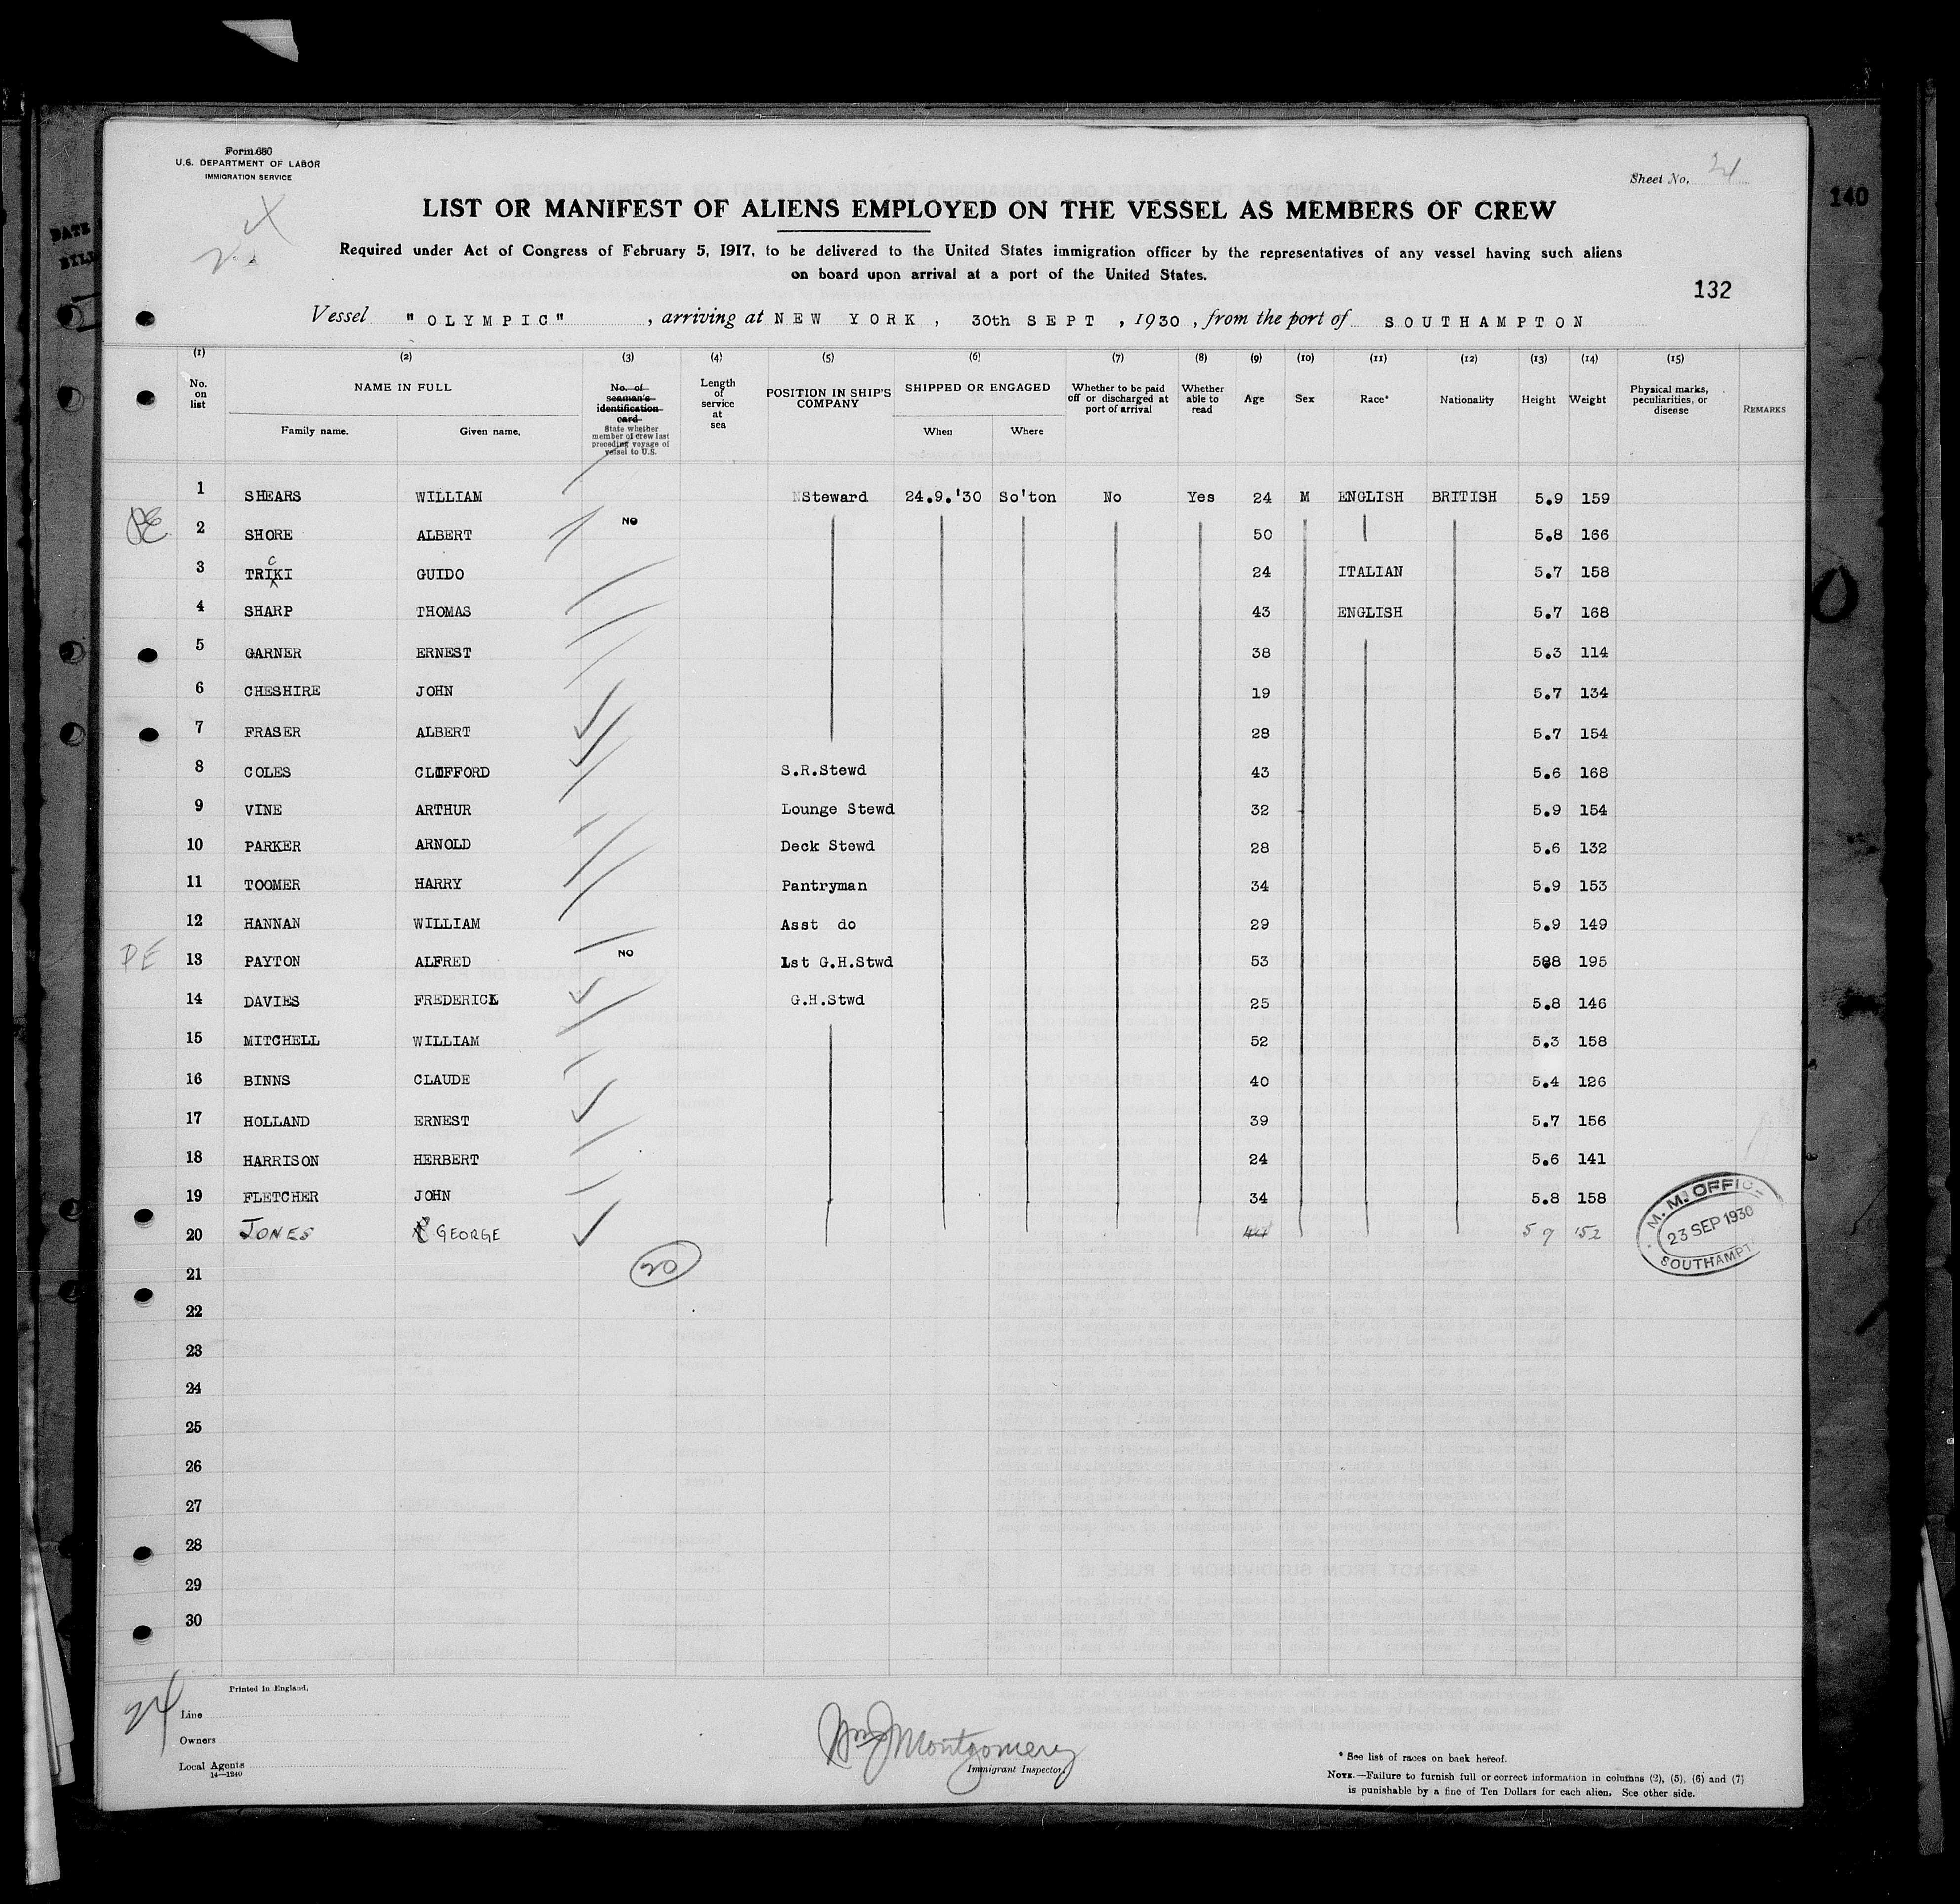 140
DATE
Form 680
U.S. DEPARTMENT OF LABOR
IMMIGRATION SERVICE
Sheet No.
LIST OR MANIFEST OF ALIENS EMPLOYED ON THE VESSEL AS MEMBERS OF CREW
Required under Act of Congress of February 5, 1917, to be delivered to the United States immigration officer by the representatives of any vessel having such aliens
on board upon arrival at a port of the United States.
132
Vessel "OLYMPIC", arriving at NEW YORK, 30th SEPT, 1930, from the port of SOUTHAMPTON
(1) (2) (3) (4) (5) (6) (7) (8) (9) (10) (11) (12) (13) (14) (15)
No. on list
NAME IN FULL
Family name. Given name.
No. of seaman's identification card
State whether member of crew last preceding voyage of vessel to U.S.
Length of service at sea
POSITION IN SHIP'S COMPANY
SHIPPED OR ENGAGED
When Where
Whether to be paid off or discharged at port of arrival
Whether able to read
Age Sex Race* Nationality Height Weight
Physical marks, peculiarities, or disease
REMARKS
1 SHEARS WILLIAM Steward 24.9.'30 So'ton No Yes 24 M ENGLISH BRITISH 5.9 159
PE 2 SHORE ALBERT NO 50 5.8 166
3 TRICKI GUIDO 24 ITALIAN 5.7 158
4 SHARP THOMAS 43 ENGLISH 5.7 168
5 GARNER ERNEST 38 5.3 114
6 CHESHIRE JOHN 19 5.7 134
7 FRASER ALBERT 28 5.7 154
8 COLES CLIFFORD S.R.Stewd 43 5.6 168
9 VINE ARTHUR Lounge Stewd 32 5.9 154
10 PARKER ARNOLD Deck Stewd 28 5.6 132
11 TOOMER HARRY Pantryman 34 5.9 153
12 HANNAN WILLIAM Asst do 29 5.9 149
PE 13 PAYTON ALFRED NO 1st G.H.Stwd 53 5.8 195
14 DAVIES FREDERICK G.H.Stwd 25 5.8 146
15 MITCHELL WILLIAM 52 5.3 158
16 BINNS CLAUDE 40 5.4 126
17 HOLLAND ERNEST 39 5.7 156
18 HARRISON HERBERT 24 5.6 141
19 FLETCHER JOHN 34 5.8 158
20 JONES GEORGE 5 9 152
20
M.M. OFFICE
23 SEP 1930
SOUTHAMPT
21
22
23
24
25
26
27
28
29
30
Printed in England.
24
Line
Owners
Local Agents
14—1240
Wm J Montgomery
Immigrant Inspector.
* See list of races on back hereof.
NOTE.—Failure to furnish full or correct information in columns (2), (5), (6) and (7)
is punishable by a fine of Ten Dollars for each alien. See other side.